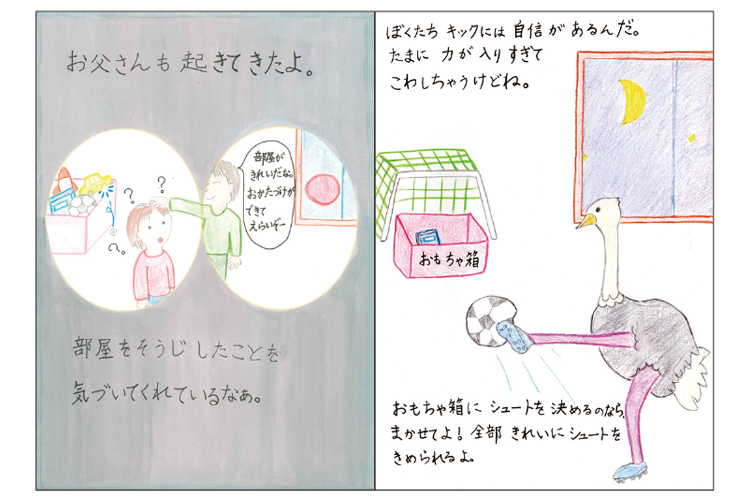 お父さんも起きてきたよ。
部屋が
きれいだな。
おかたづけが
できて
えらいぞー
?
?
?
部屋をそうじしたことを
気づいてくれているなあ。
ぼくたち キックには 自信が あるんだ。
たまに 力が 入りすぎて
こわしちゃうけどね。
おもちゃ箱
おもちゃ箱に シュートを 決めるのなら、
まかせてよ! 全部 きれいに シュートを
きめられるよ。